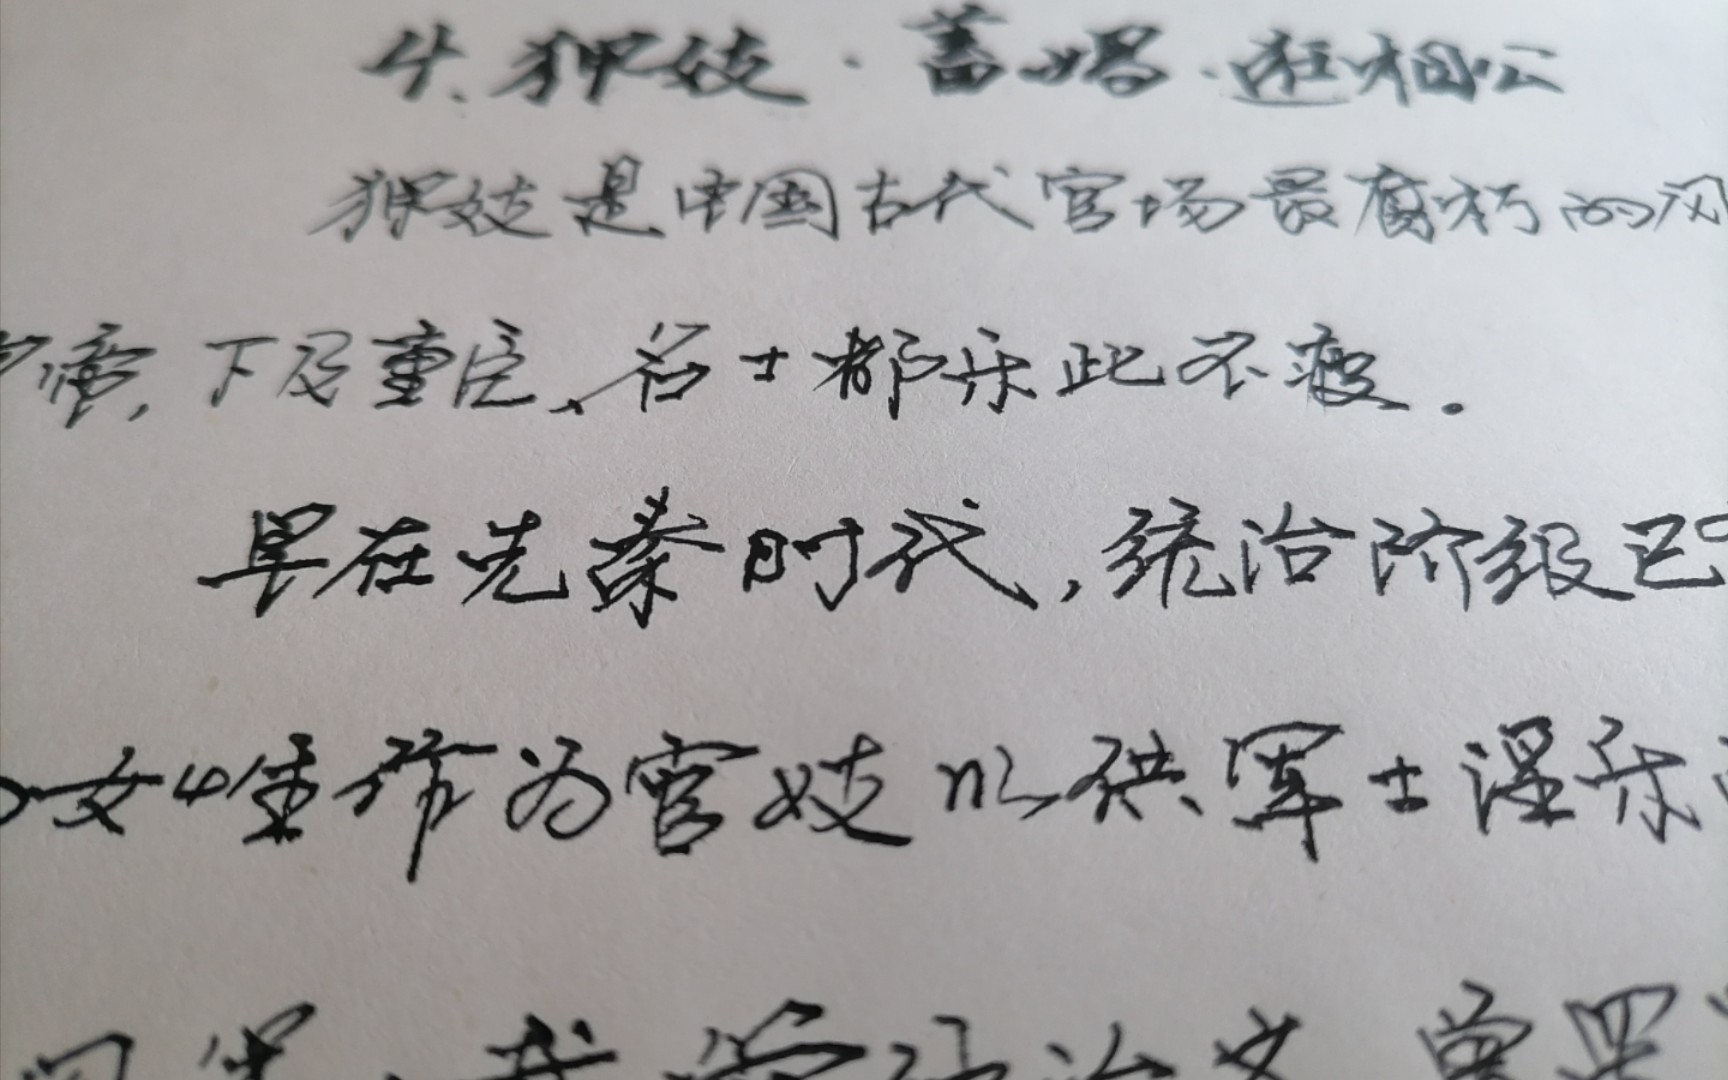 4、狎妓·蓄娼·逛相公
狎妓是中国古代官场最腐朽的风
帝，下及重臣、名士都乐此不疲。
早在先秦时代，统治阶级已
女性作为官妓以供军士淫乐